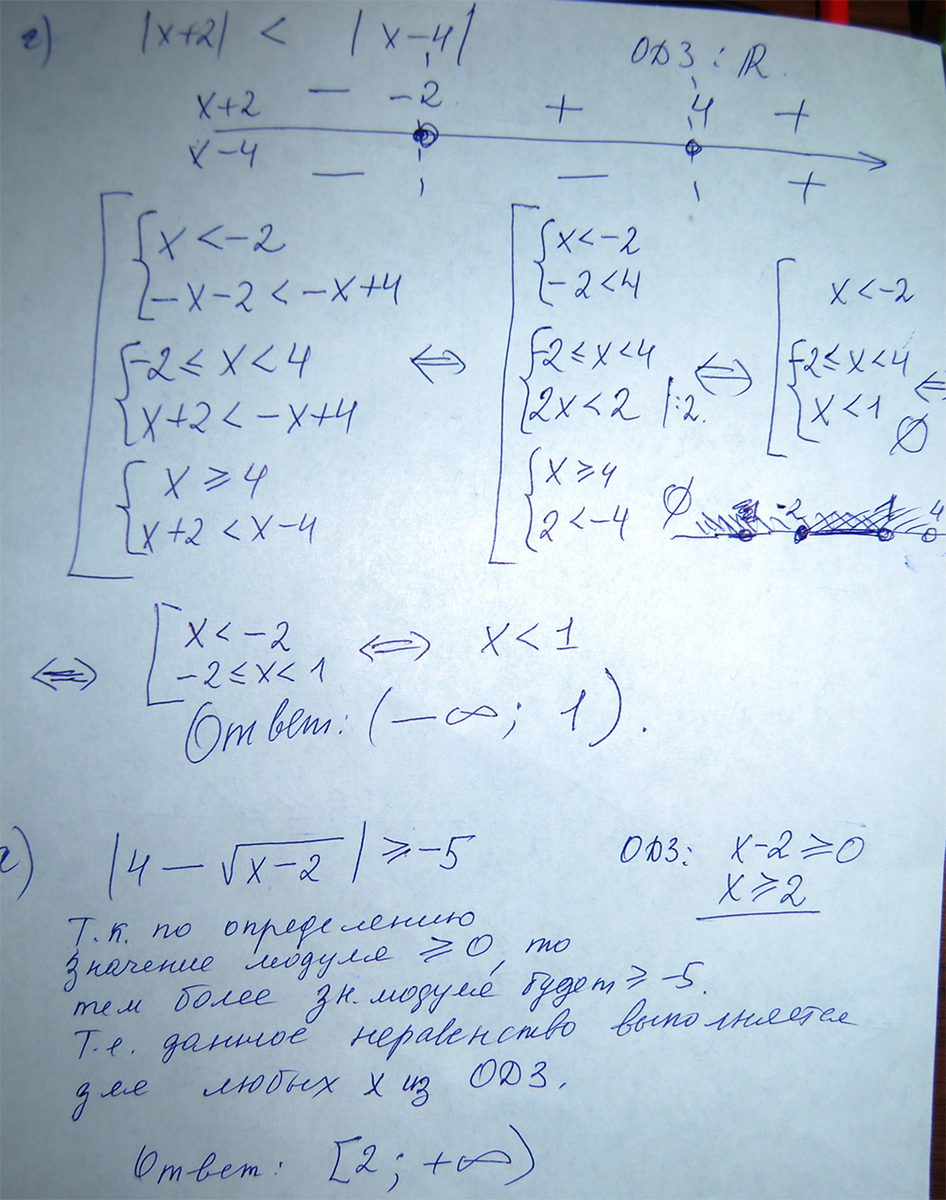 г) |x+2| < |x-4|
ОДЗ: ℝ.
x+2 — -2 + 4 +
x-4 — — +
x < -2
-x-2 < -x+4
-2 ≤ x < 4
x+2 < -x+4
x ≥ 4
x+2 < x-4
⇔
x < -2
-2 < 4
-2 ≤ x < 4
2x < 2 |:2.
x ≥ 4
2 < -4 ∅
⇔
x < -2
-2 ≤ x < 4
x < 1 ∅
⇔
-2 1 4
⇔ x < -2
-2 ≤ x < 1
⇔ x < 1
Ответ: (-∞; 1).
г) |4 - √(x-2)| ≥ -5
ОДЗ: x-2 ≥ 0
x ≥ 2
Т.к. по определению
значение модуля ≥ 0, то
тем более зн. модуля будет ≥ -5.
Т.е. данное неравенство выполняется
для любых x из ОДЗ.
Ответ: [2; +∞)